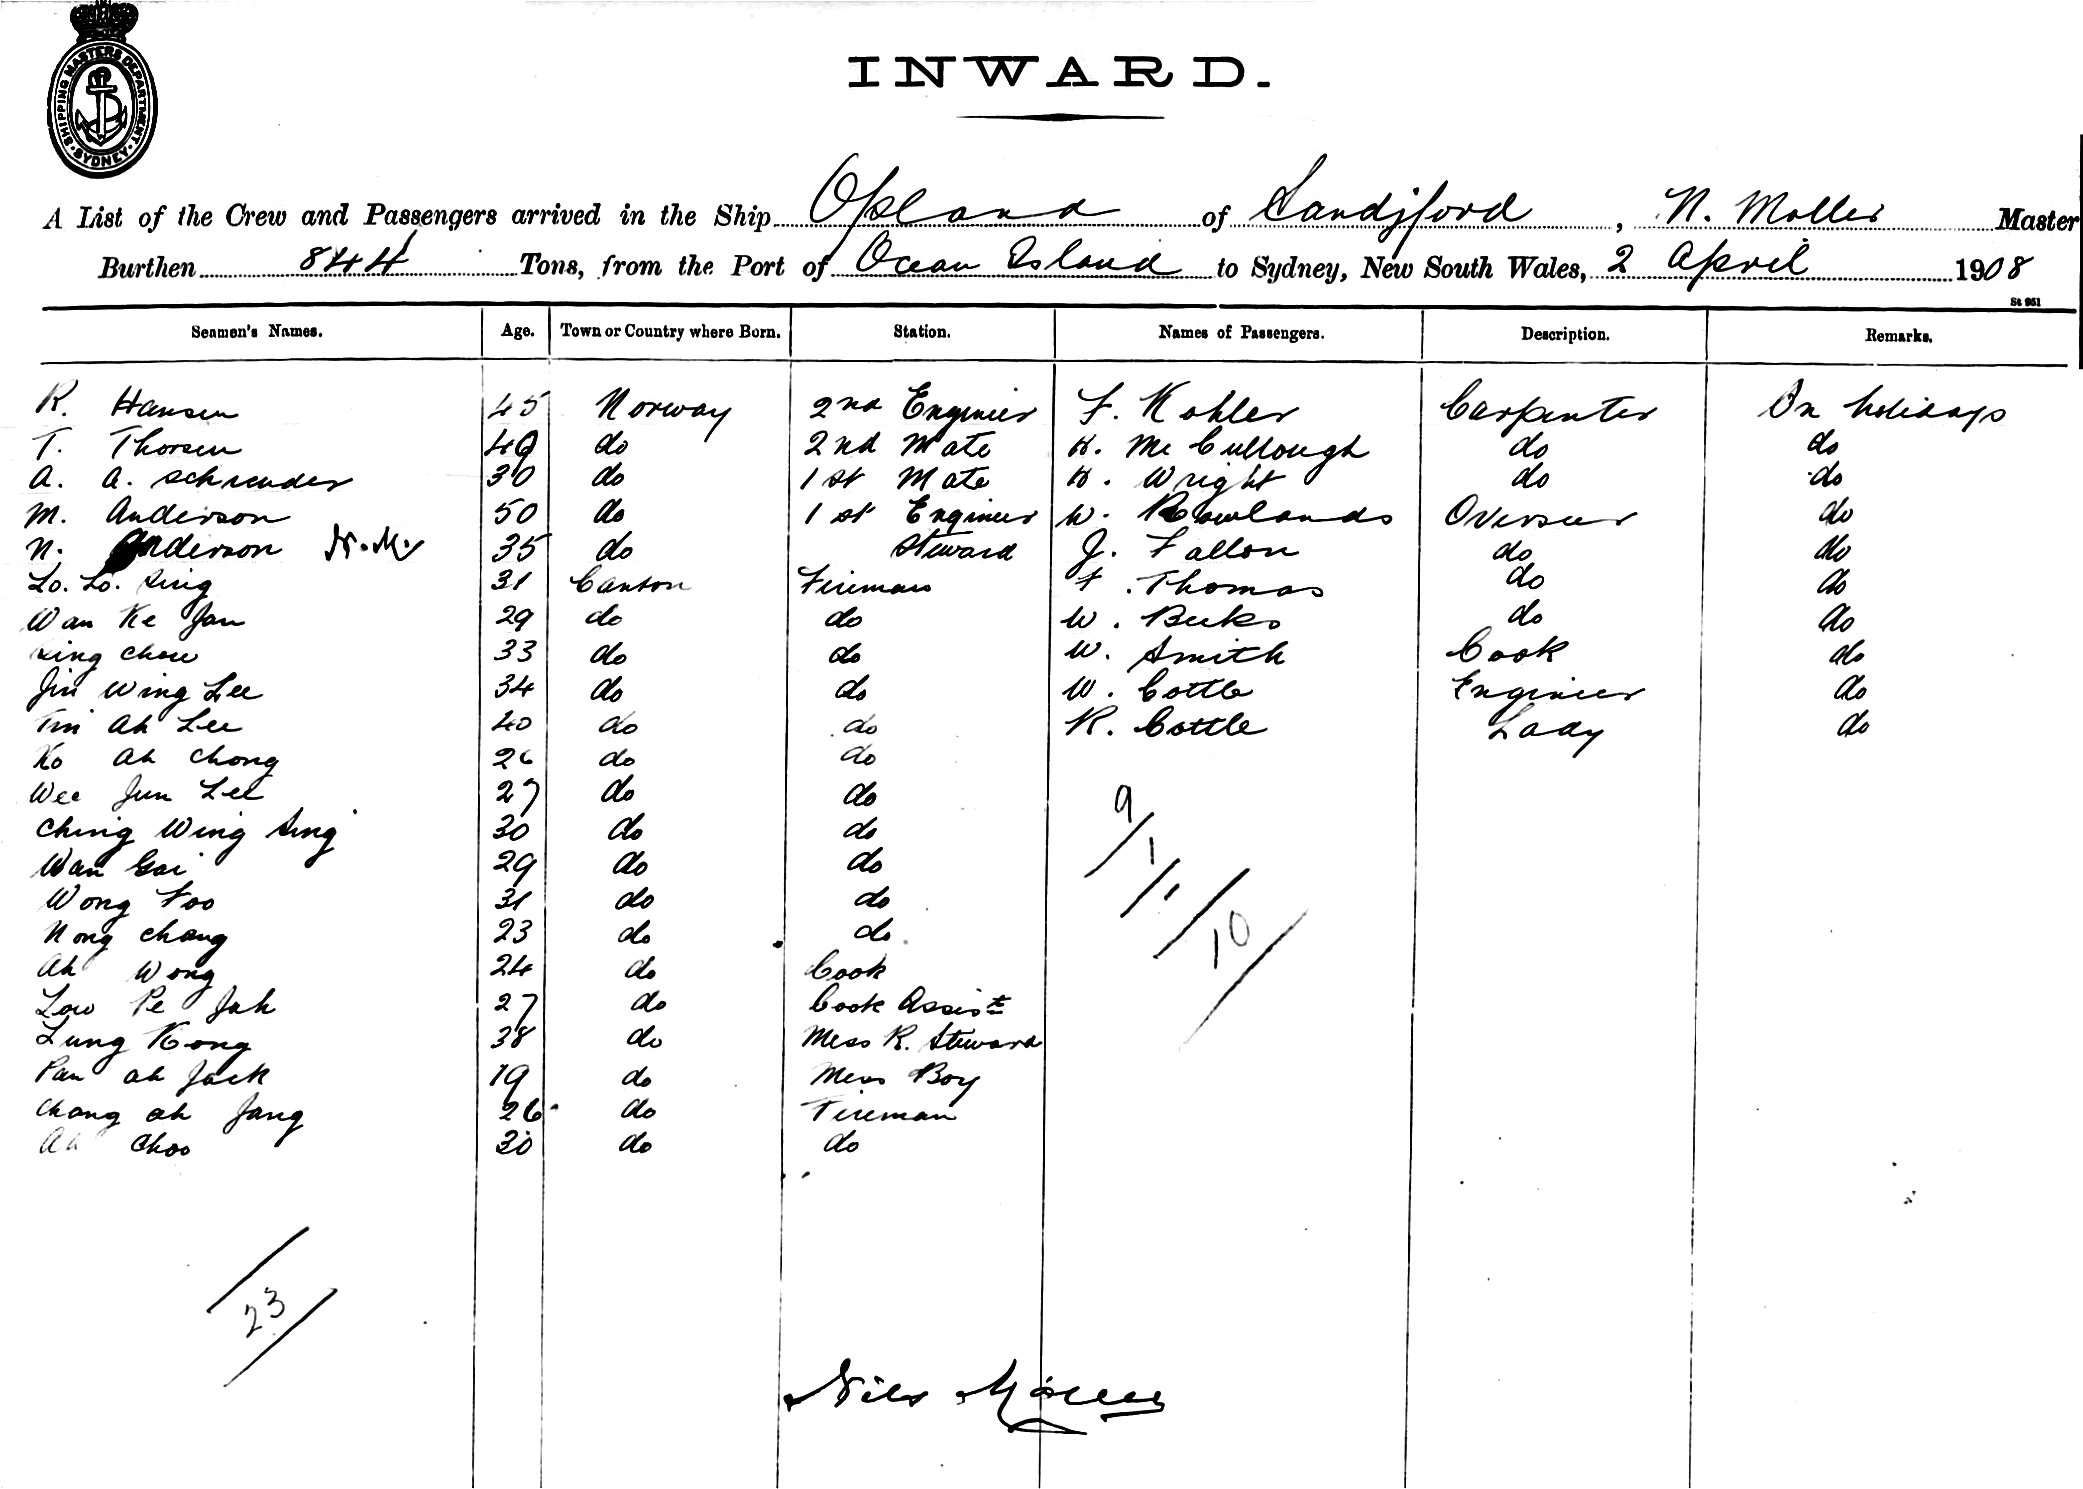 SHIPPING MASTERS DEPARTMENT · SYDNEY ·
INWARD.
A List of the Crew and Passengers arrived in the Ship Opland of Sandjford, N. Moller Master
Burthen 844 Tons, from the Port of Ocean Island to Sydney, New South Wales, 2 April 1908
St 951
Seamen's Names. Age. Town or Country where Born. Station. Names of Passengers. Description. Remarks.
R. Hansen 45 Norway 2nd Engineer F. Kohler Carpenter On holidays
T. Thorsen 49 do 2nd Mate H. McCullough do do
A. A. Schreuder 30 do 1st Mate H. Wright do do
M. Anderson 50 do 1st Engineer W. Rowlands Overseer do
N. Anderson N.M. 35 do Steward J. Fallon do do
Lo. Lo. Sing 31 Canton Fireman F. Thomas do do
Wan Ke Jan 29 do do W. do do
Ling Chow 33 do do W. Smith Cook do
Jin Wing Lee 34 do do W. Cottle Engineer do
Tin Ah Lee 40 do do R. Cottle Lady do
Ko Ah Chong 26 do do
Wee Jun Lee 27 do do
Ching Wing Sing 30 do do
Wan Goi 29 do do
Wong Foo 31 do do
Nong Chang 23 do do
Ah Wong 24 do Cook
Low Pe Jah 27 do Cook Assist
Lung Kong 38 do Mess R. Steward
Pan ah Jack 19 do Mess Boy
Chong ah Jang 26 do Fireman
Ah Choo 30 do do
9/1/1/10/
/23/
Nils Möller